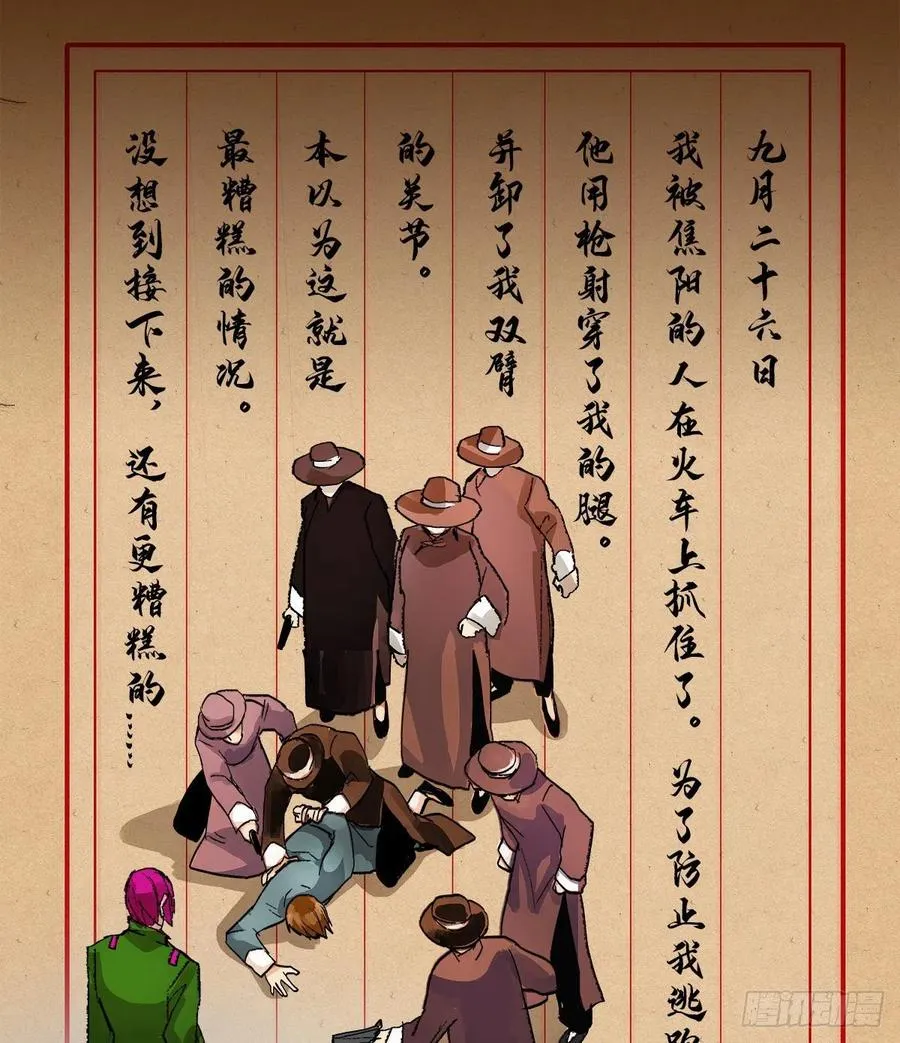 九月二十六日
我被焦阳的人在火车上抓住了。为了防止我逃跑
他用枪射穿了我的腿。
并卸了我双臂
的关节。
本以为这就是
最糟糕的情况。
没想到接下来，还有更糟糕的……
腾讯动漫